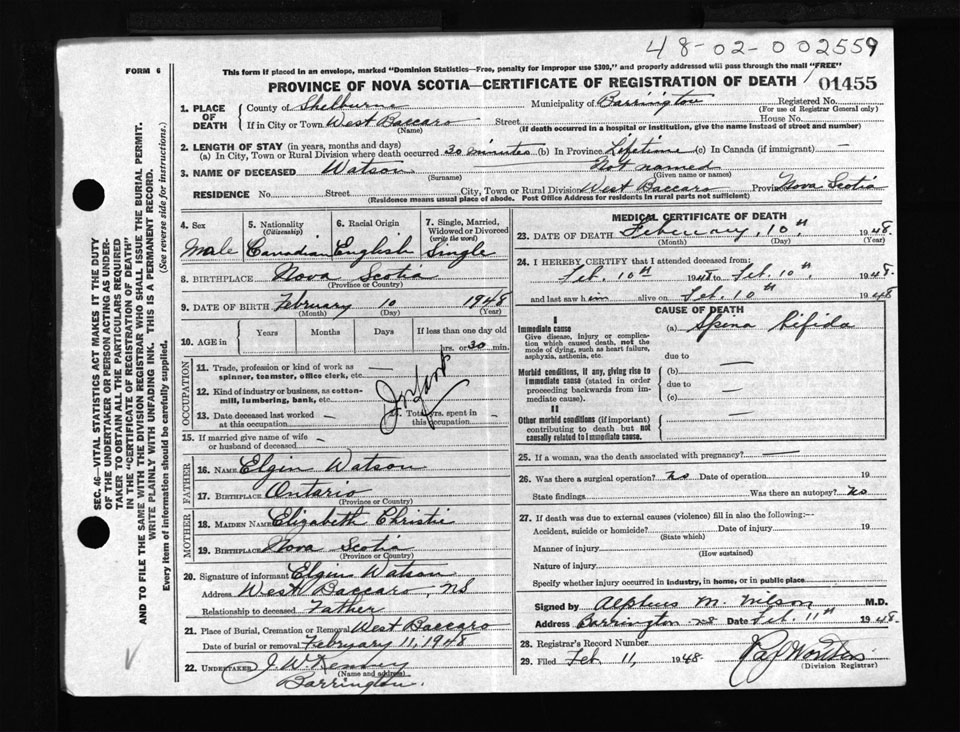 48-02-002559
FORM 6
This form if placed in an envelope, marked "Dominion Statistics—Free, penalty for improper use $300," and properly addressed will pass through the mail "FREE"
PROVINCE OF NOVA SCOTIA—CERTIFICATE OF REGISTRATION OF DEATH
01455
1. PLACE OF DEATH
County of Shelburne Municipality of Barrington Registered No.
(For use of Registrar General only)
If in City or Town West Baccaro Street House No.
(Name) (If death occurred in a hospital or institution, give the name instead of street and number)
2. LENGTH OF STAY (in years, months and days)
(a) In City, Town or Rural Division where death occurred 30 minutes (b) In Province Lifetime (c) In Canada (if immigrant) —
3. NAME OF DECEASED Watson Not named
(Surname) (Given name or names)
RESIDENCE No. Street City, Town or Rural Division West Baccaro Province Nova Scotia
(Residence means usual place of abode. Post Office Address for residents in rural parts not sufficient)
4. Sex 5. Nationality (Citizenship) 6. Racial Origin 7. Single, Married, Widowed or Divorced (write the word)
Male Canadian English Single
8. BIRTHPLACE Nova Scotia
(Province or Country)
9. DATE OF BIRTH February 10 1948
(Month) (Day) (Year)
10. AGE in Years Months Days If less than one day old
hrs. or 30 min.
OCCUPATION
11. Trade, profession or kind of work as spinner, teamster, office clerk, etc.
12. Kind of industry or business, as cotton-mill, lumbering, bank, etc.
13. Date deceased last worked at this occupation —
14. Total yrs. spent in this occupation —
15. If married give name of wife or husband of deceased —
FATHER
16. NAME Elgin Watson
17. BIRTHPLACE Ontario
(Province or Country)
MOTHER
18. MAIDEN NAME Elizabeth Christie
19. BIRTHPLACE Nova Scotia
(Province or Country)
20. Signature of informant Elgin Watson
Address West Baccaro, NS
Relationship to deceased Father
21. Place of Burial, Cremation or Removal West Baccaro
Date of burial or removal February 11, 1948
22. UNDERTAKER J. W. Kenney
(Name and address)
Barrington.
MEDICAL CERTIFICATE OF DEATH
23. DATE OF DEATH February, 10th 1948.
(Month) (Day) (Year)
24. I HEREBY CERTIFY that I attended deceased from:
Feb. 10th 1948 to Feb. 10th, 1948.
and last saw him alive on Feb. 10th 1948
CAUSE OF DEATH
I
Immediate cause
Give disease, injury or complication which caused death, not the mode of dying, such as heart failure, asphyxia, asthenia, etc.
(a) Spina bifida
due to
Morbid conditions, if any, giving rise to immediate cause (stated in order proceeding backwards from immediate cause).
(b) —
due to
(c) —
II
Other morbid conditions (if important) contributing to death but not causally related to immediate cause.
25. If a woman, was the death associated with pregnancy? —
26. Was there a surgical operation? No Date of operation 19
State findings Was there an autopsy? No
27. If death was due to external causes (violence) fill in also the following:—
Accident, suicide or homicide? Date of injury 19
(State which)
Manner of injury
(How sustained)
Nature of injury
Specify whether injury occurred in industry, in home, or in public place
Signed by Alpheus M. Wilson M.D.
Address Barrington NS Date Feb. 11th 1948.
28. Registrar's Record Number
29. Filed Feb 11, 1948.
(Division Registrar)
SEC. 46—VITAL STATISTICS ACT MAKES IT THE DUTY
OF THE UNDERTAKER OR PERSON ACTING AS UNDER-
TAKER TO OBTAIN ALL THE PARTICULARS REQUIRED
IN THE "CERTIFICATE OF REGISTRATION OF DEATH"
AND TO FILE THE SAME WITH THE DIVISION REGISTRAR WHO SHALL ISSUE THE BURIAL PERMIT.
WRITE PLAINLY WITH UNFADING INK. THIS IS A PERMANENT RECORD.
Every item of information should be carefully supplied. (See reverse side for instructions.)